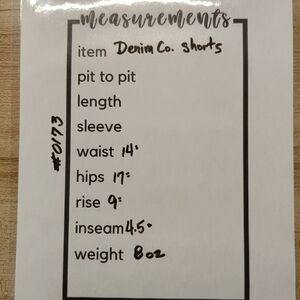 measurements
item Denim Co. shorts
pit to pit
length
sleeve
waist 14"
hips 17"
rise 9"
inseam 4.5"
weight 8 oz
#0173